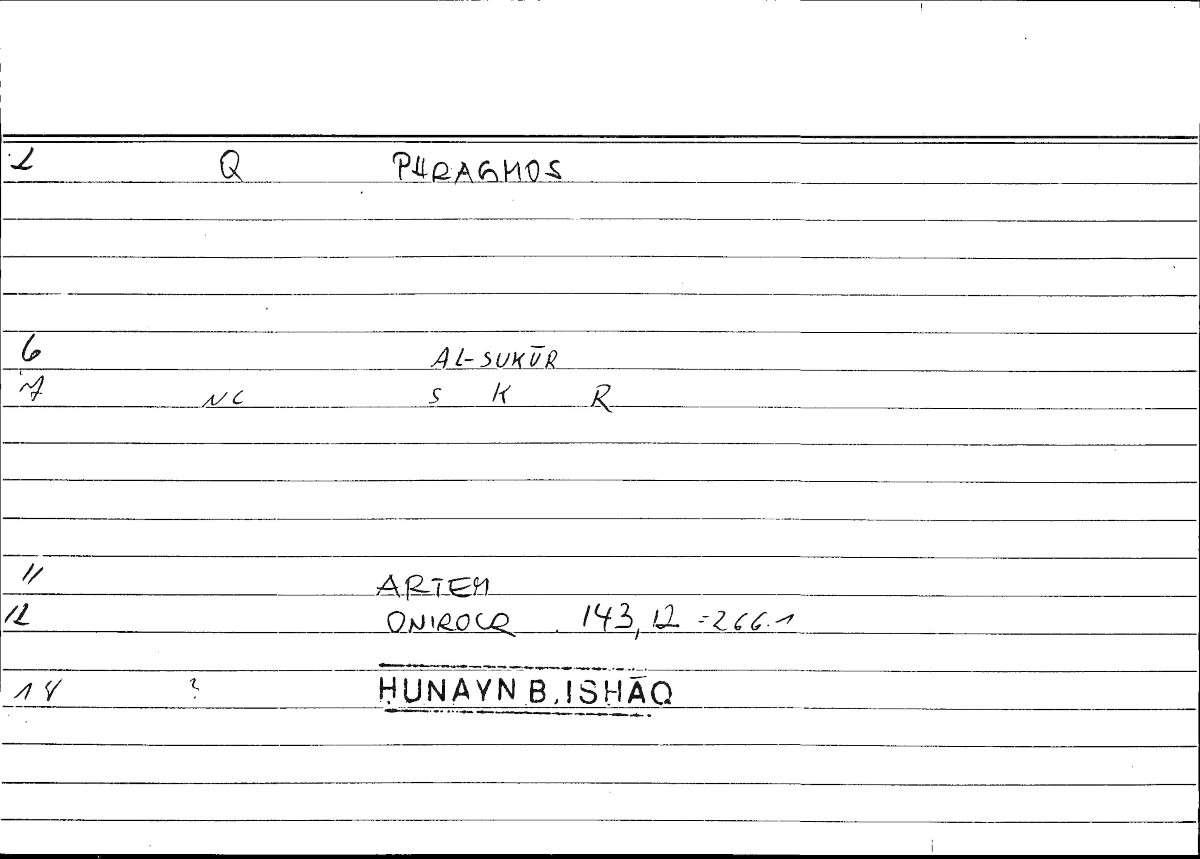 1 Q PHRAGMOS
6 AL-SUKŪR
7 NC S K R
11 ARTEM
12 ONIROCR. 143,12 = 266.1
14 ? ḤUNAYN B. ISḤĀQ